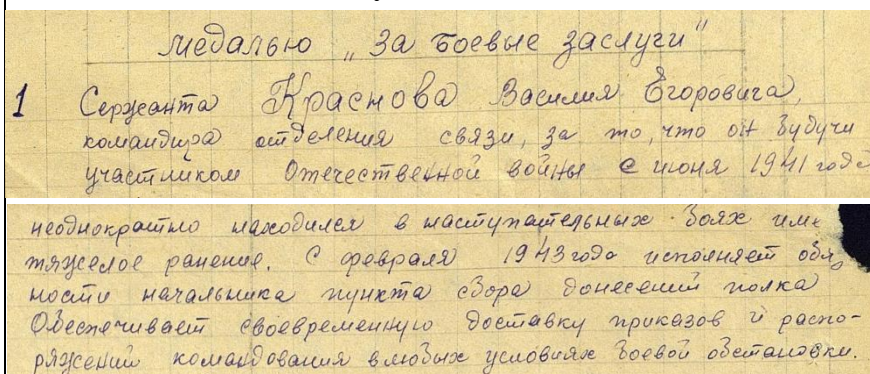 медалью „За боевые заслуги"
1 Сержанта Краснова Василия Егоровича,
командира отделения связи, за то, что он будучи
участником Отечественной войны с июня 1941 года
неоднократно находился в наступательных боях име
тяжелое ранение. С февраля 1943 года исполняет обя
ности начальника пункта сбора донесений полка
Обеспечивает своевременную доставку приказов и распо-
ряжений командования в любых условиях боевой обстановки.